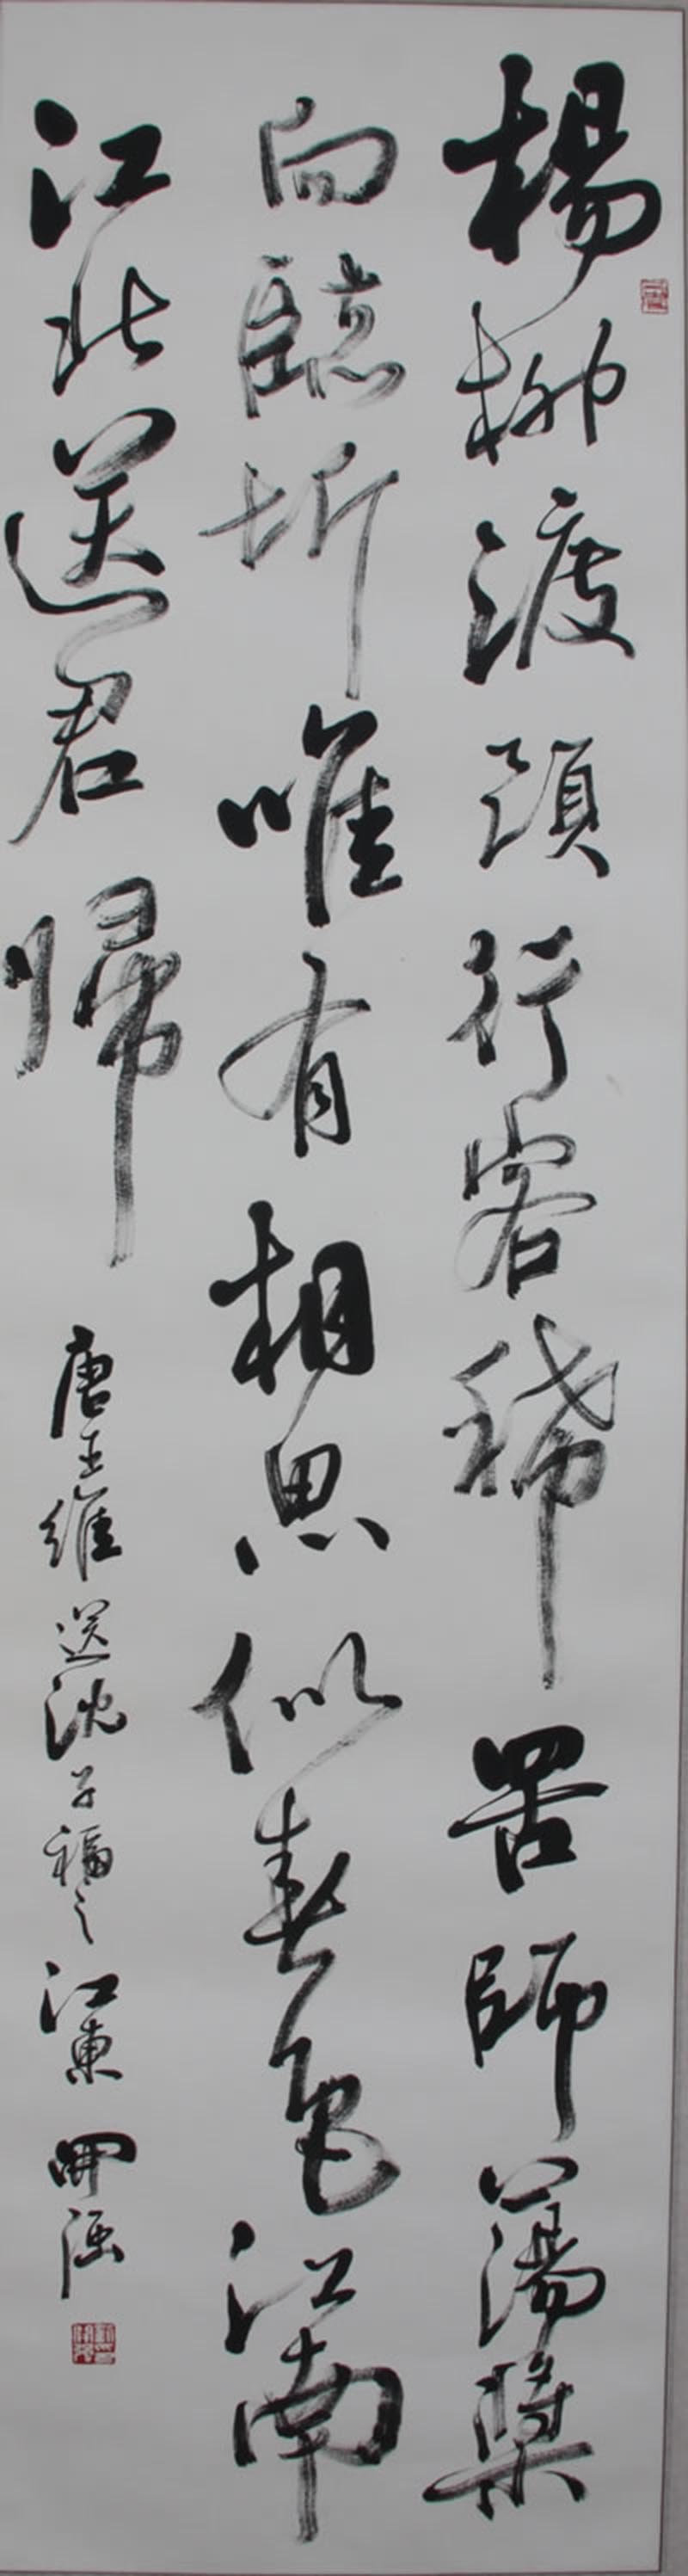 楊柳渡頭行客稀罟師蕩槳
向臨圻唯有相思似春色江南
江北送君歸
唐王維送沈子福之江東